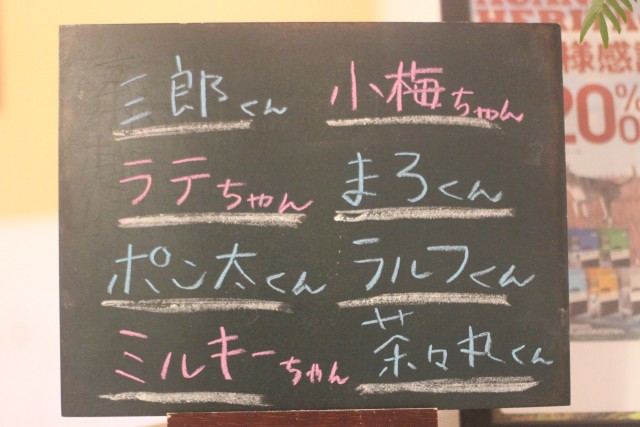 三郎くん 小梅ちゃん
ラテちゃん まろくん
ポン太くん ラルフくん
ミルキーちゃん 茶々丸くん
様感
20%